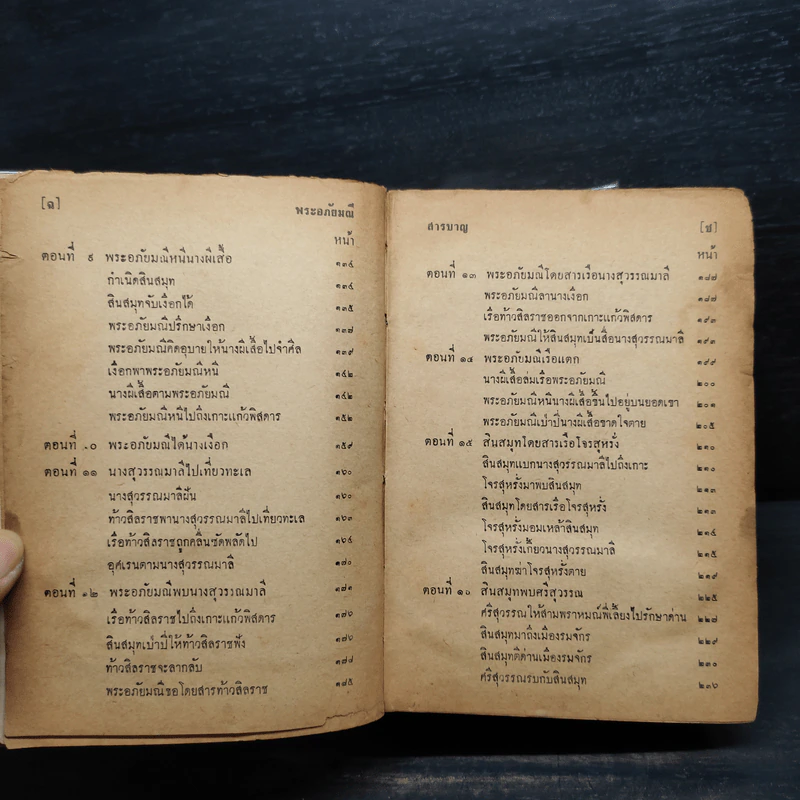 [ฉ] พระอภัยมณี
หน้า
ตอนที่ ๙ พระอภัยมณีหนีนางผีเสื้อ ๑๓๔
กำเนิดสินสมุท ๑๓๔
สินสมุทจับเงือกได้ ๑๓๕
พระอภัยมณีปรึกษาเงือก ๑๓๗
พระอภัยมณีคิดอุบายให้นางผีเสื้อไปจำศีล ๑๓๙
เงือกพาพระอภัยมณีหนี ๑๔๒
นางผีเสื้อตามพระอภัยมณี ๑๔๒
พระอภัยมณีหนีไปถึงเกาะแก้วพิสดาร ๑๕๒
ตอนที่ ๑๐ พระอภัยมณีได้นางเงือก ๑๕๙
ตอนที่ ๑๑ นางสุวรรณมาลีไปเที่ยวทะเล ๑๖๐
นางสุวรรณมาลีฝัน ๑๖๐
ท้าวสิลราชพานางสุวรรณมาลีไปเที่ยวทะเล ๑๖๓
เรือท้าวสิลราชถูกคลื่นซัดพลัดไป ๑๖๔
อุศเรนตามนางสุวรรณมาลี ๑๗๐
ตอนที่ ๑๒ พระอภัยมณีพบนางสุวรรณมาลี
เรือท้าวสิลราชไปถึงเกาะแก้วพิสดาร ๑๗๖
สินสมุทเป่าปี่ให้ท้าวสิลราชฟัง ๑๗๖
ท้าวสิลราชจะลากลับ
พระอภัยมณีขอโดยสารท้าวสิลราช ๑๘๕
สารบาญ [ช]
หน้า
ตอนที่ ๑๓ พระอภัยมณีโดยสารเรือนางสุวรรณมาลี ๑๘๗
พระอภัยมณีลานางเงือก ๑๘๗
เรือท้าวสิลราชออกจากเกาะแก้วพิสดาร ๑๙๓
พระอภัยมณีให้สินสมุทเป็นสื่อนางสุวรรณมาลี ๑๙๓
ตอนที่ ๑๔ พระอภัยมณีเรือแตก ๑๙๙
นางผีเสื้อล่มเรือพระอภัยมณี ๒๐๐
พระอภัยมณีหนีนางผีเสื้อขึ้นไปอยู่บนยอดเขา ๒๐๑
พระอภัยมณีเป่าปี่นางผีเสื้อขาดใจตาย ๒๐๕
ตอนที่ ๑๕ สินสมุทโดยสารเรือโจรสุหรั่ง ๒๑๐
สินสมุทแบกนางสุวรรณมาลีไปถึงเกาะ ๒๑๐
โจรสุหรั่งมาพบสินสมุท ๒๑๓
สินสมุทโดยสารเรือโจรสุหรั่ง ๒๑๓
โจรสุหรั่งมอมเหล้าสินสมุท ๒๑๔
โจรสุหรั่งเกี้ยวนางสุวรรณมาลี ๒๑๕
สินสมุทฆ่าโจรสุหรั่งตาย ๒๑๙
ตอนที่ ๑๖ สินสมุทพบศรีสุวรรณ ๒๒๕
ศรีสุวรรณให้สามพราหมณ์พี่เลี้ยงไปรักษาด่าน ๒๒๗
สินสมุทมาถึงเมืองรมจักร ๒๒๙
สินสมุทตีด่านเมืองรมจักร ๒๓๐
ศรีสุวรรณรบกับสินสมุท ๒๓๖